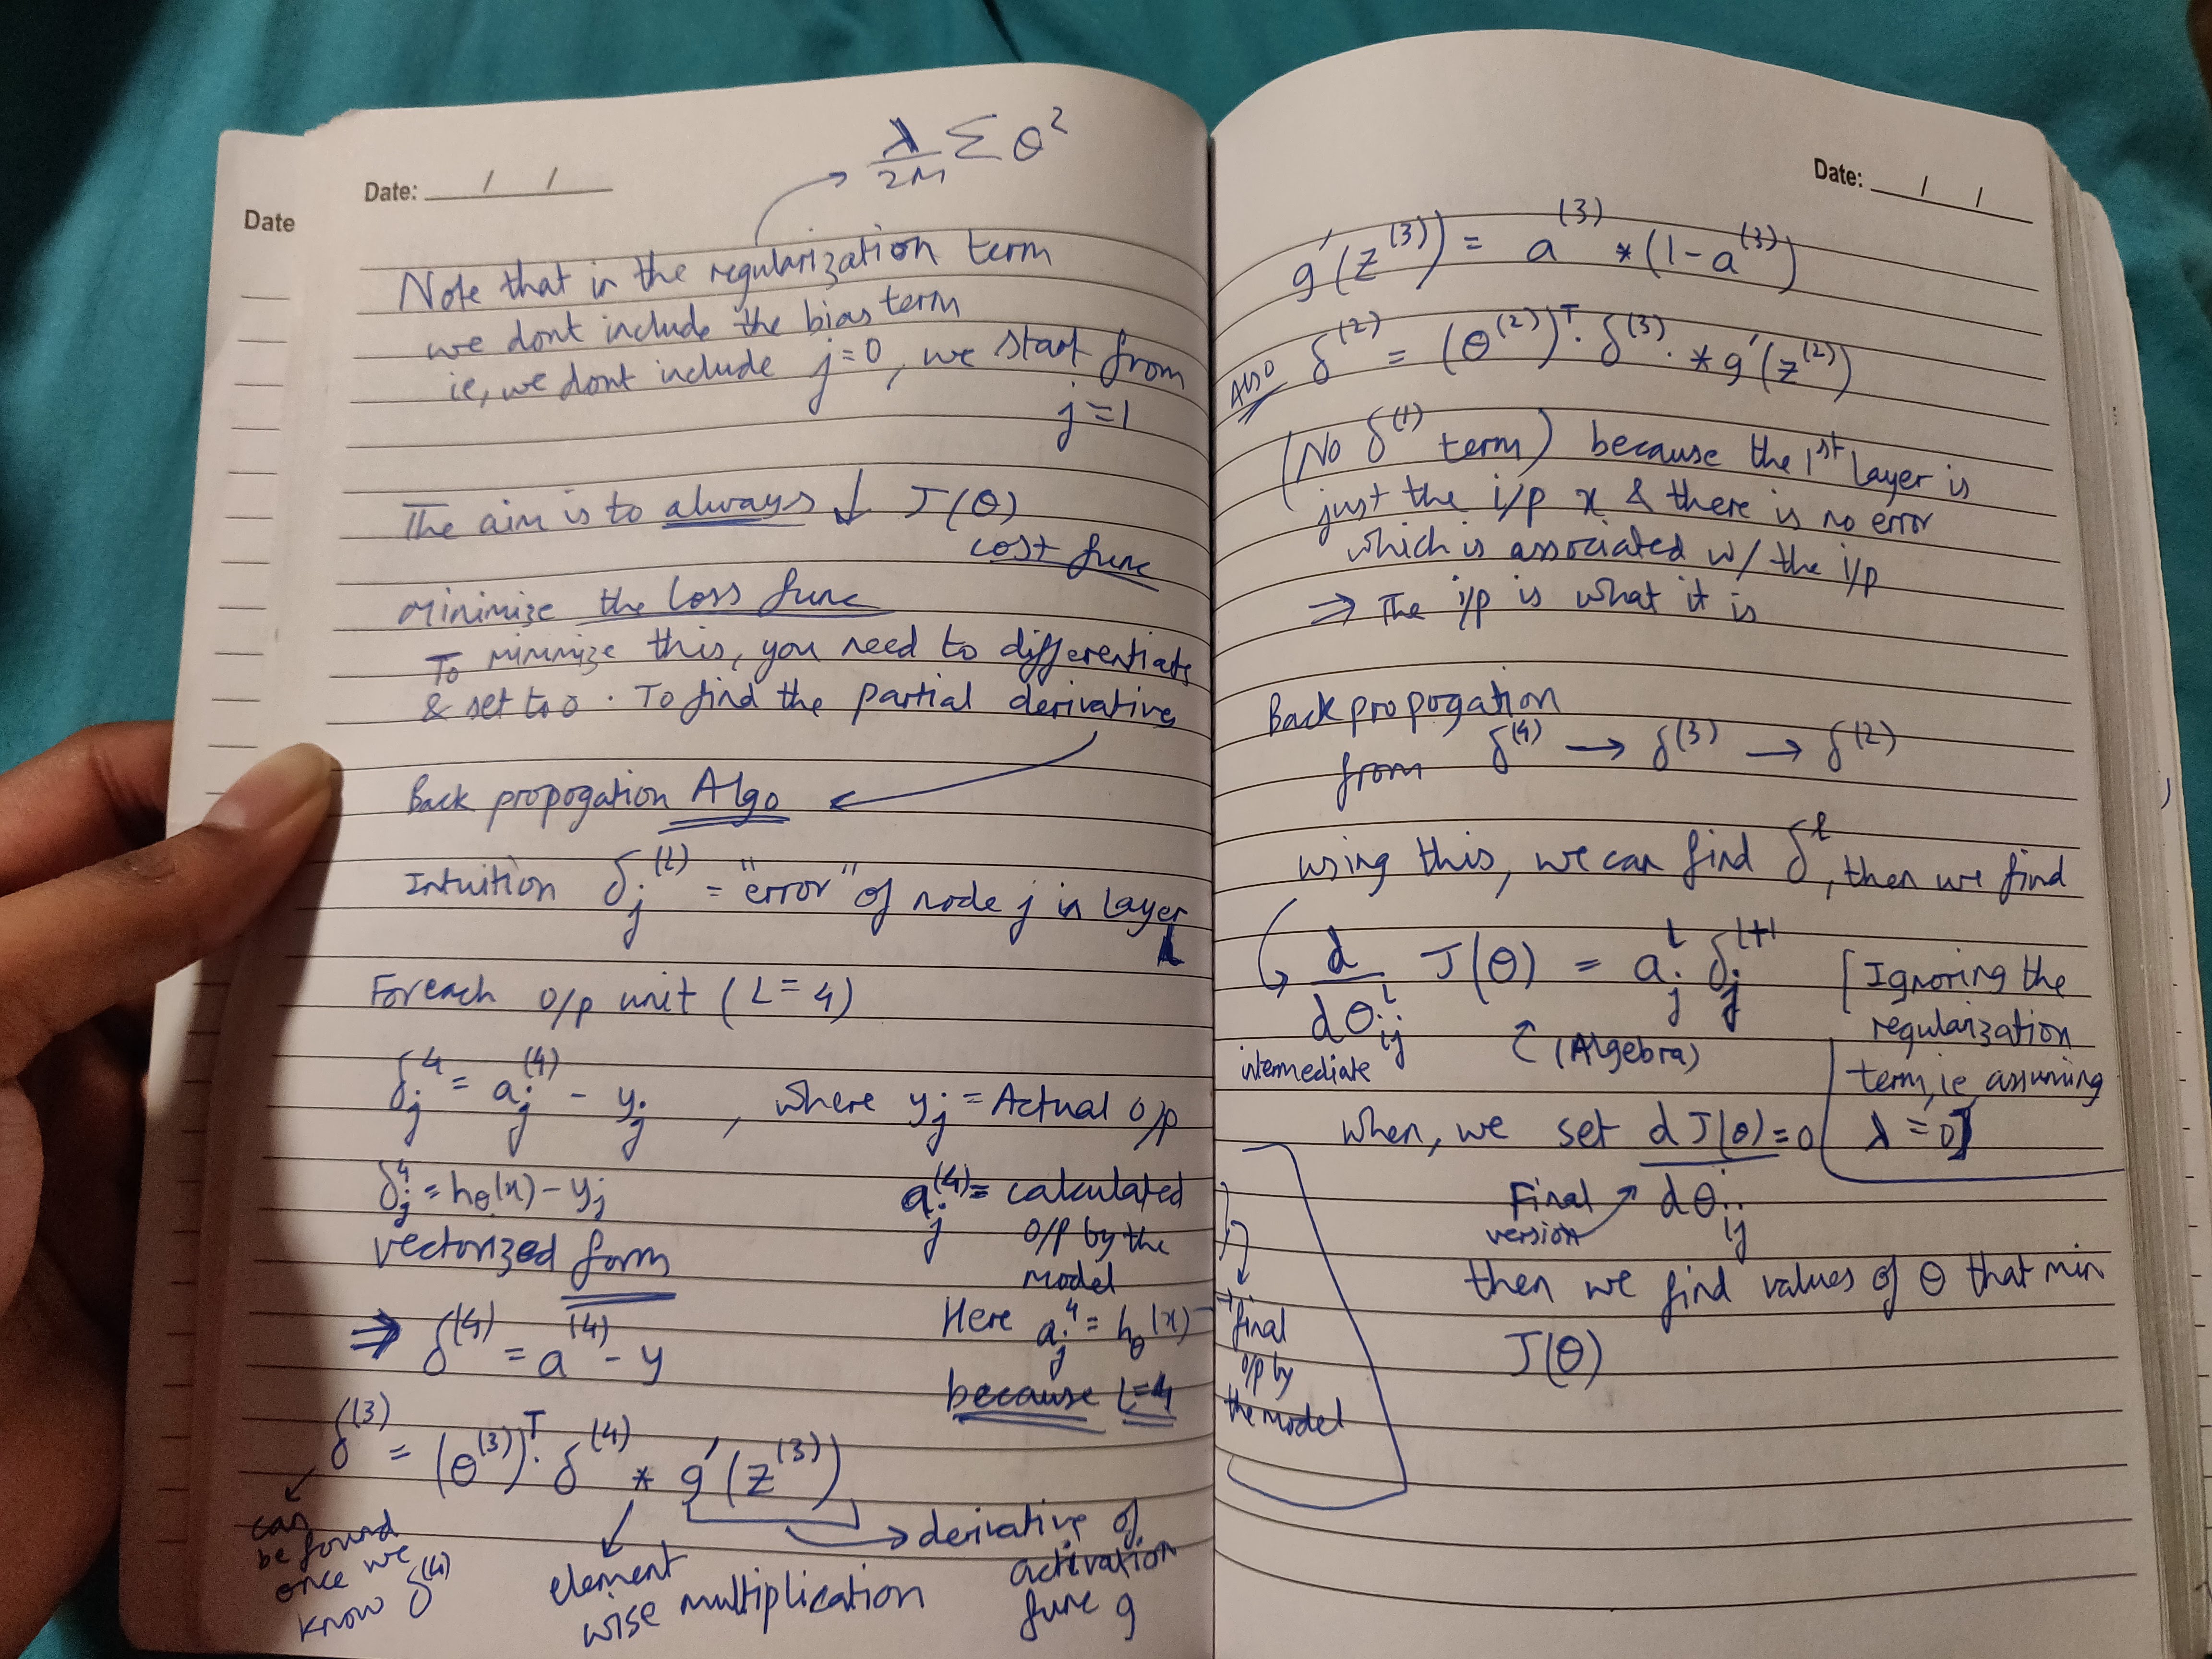 Date
Date: / /
λ/2M Σ θ²
Note that in the regularization term
we dont include the bias term
ie, we dont include j=0, we start from
j=1
The aim is to always ↓ J(θ)
cost func
Minimize the loss func
To minimize this, you need to differentiate
& set to 0. To find the partial derivative
Back propogation Algo
Intuition δj^(L) = "error" of node j in layer
L
Foreach o/p unit (L=4)
δj^4 = aj^(4) - yj , where yj = Actual o/p
δj^4 = hθ(x) - yj
aj^(4) = calculated
o/p by the
model
vectorized form
Here aj^4 = hθ(x)
because L=4
⇒ δ^(4) = a^(4) - y
δ^(3) = (θ^(3))^T . δ^(4) * g'(z^(3))
can
be found
once we
know δ^(4)
element
wise multiplication
derivative of
activation
func g
Date: / /
g'(z^(3)) = a^(3) * (1-a^(3))
Also δ^(2) = (θ^(2))^T . δ^(3) . * g'(z^(2))
(No δ^(1) term) because the 1st layer is
just the i/p x & there is no error
which is associated w/ the i/p
⇒ The i/p is what it is
Back propogation
from δ^(4) → δ^(3) → δ^(2)
using this, we can find δ^l, then we find
d/dθij^L J(θ) = aj^L δj^L+1
intermediate
(Algebra)
[Ignoring the
regularization
term, ie, assuming
λ = 0]
when, we set dJ(θ)/dθij = 0
Final
version
then we find values of θ that min
J(θ)
→ final
o/p by
the model